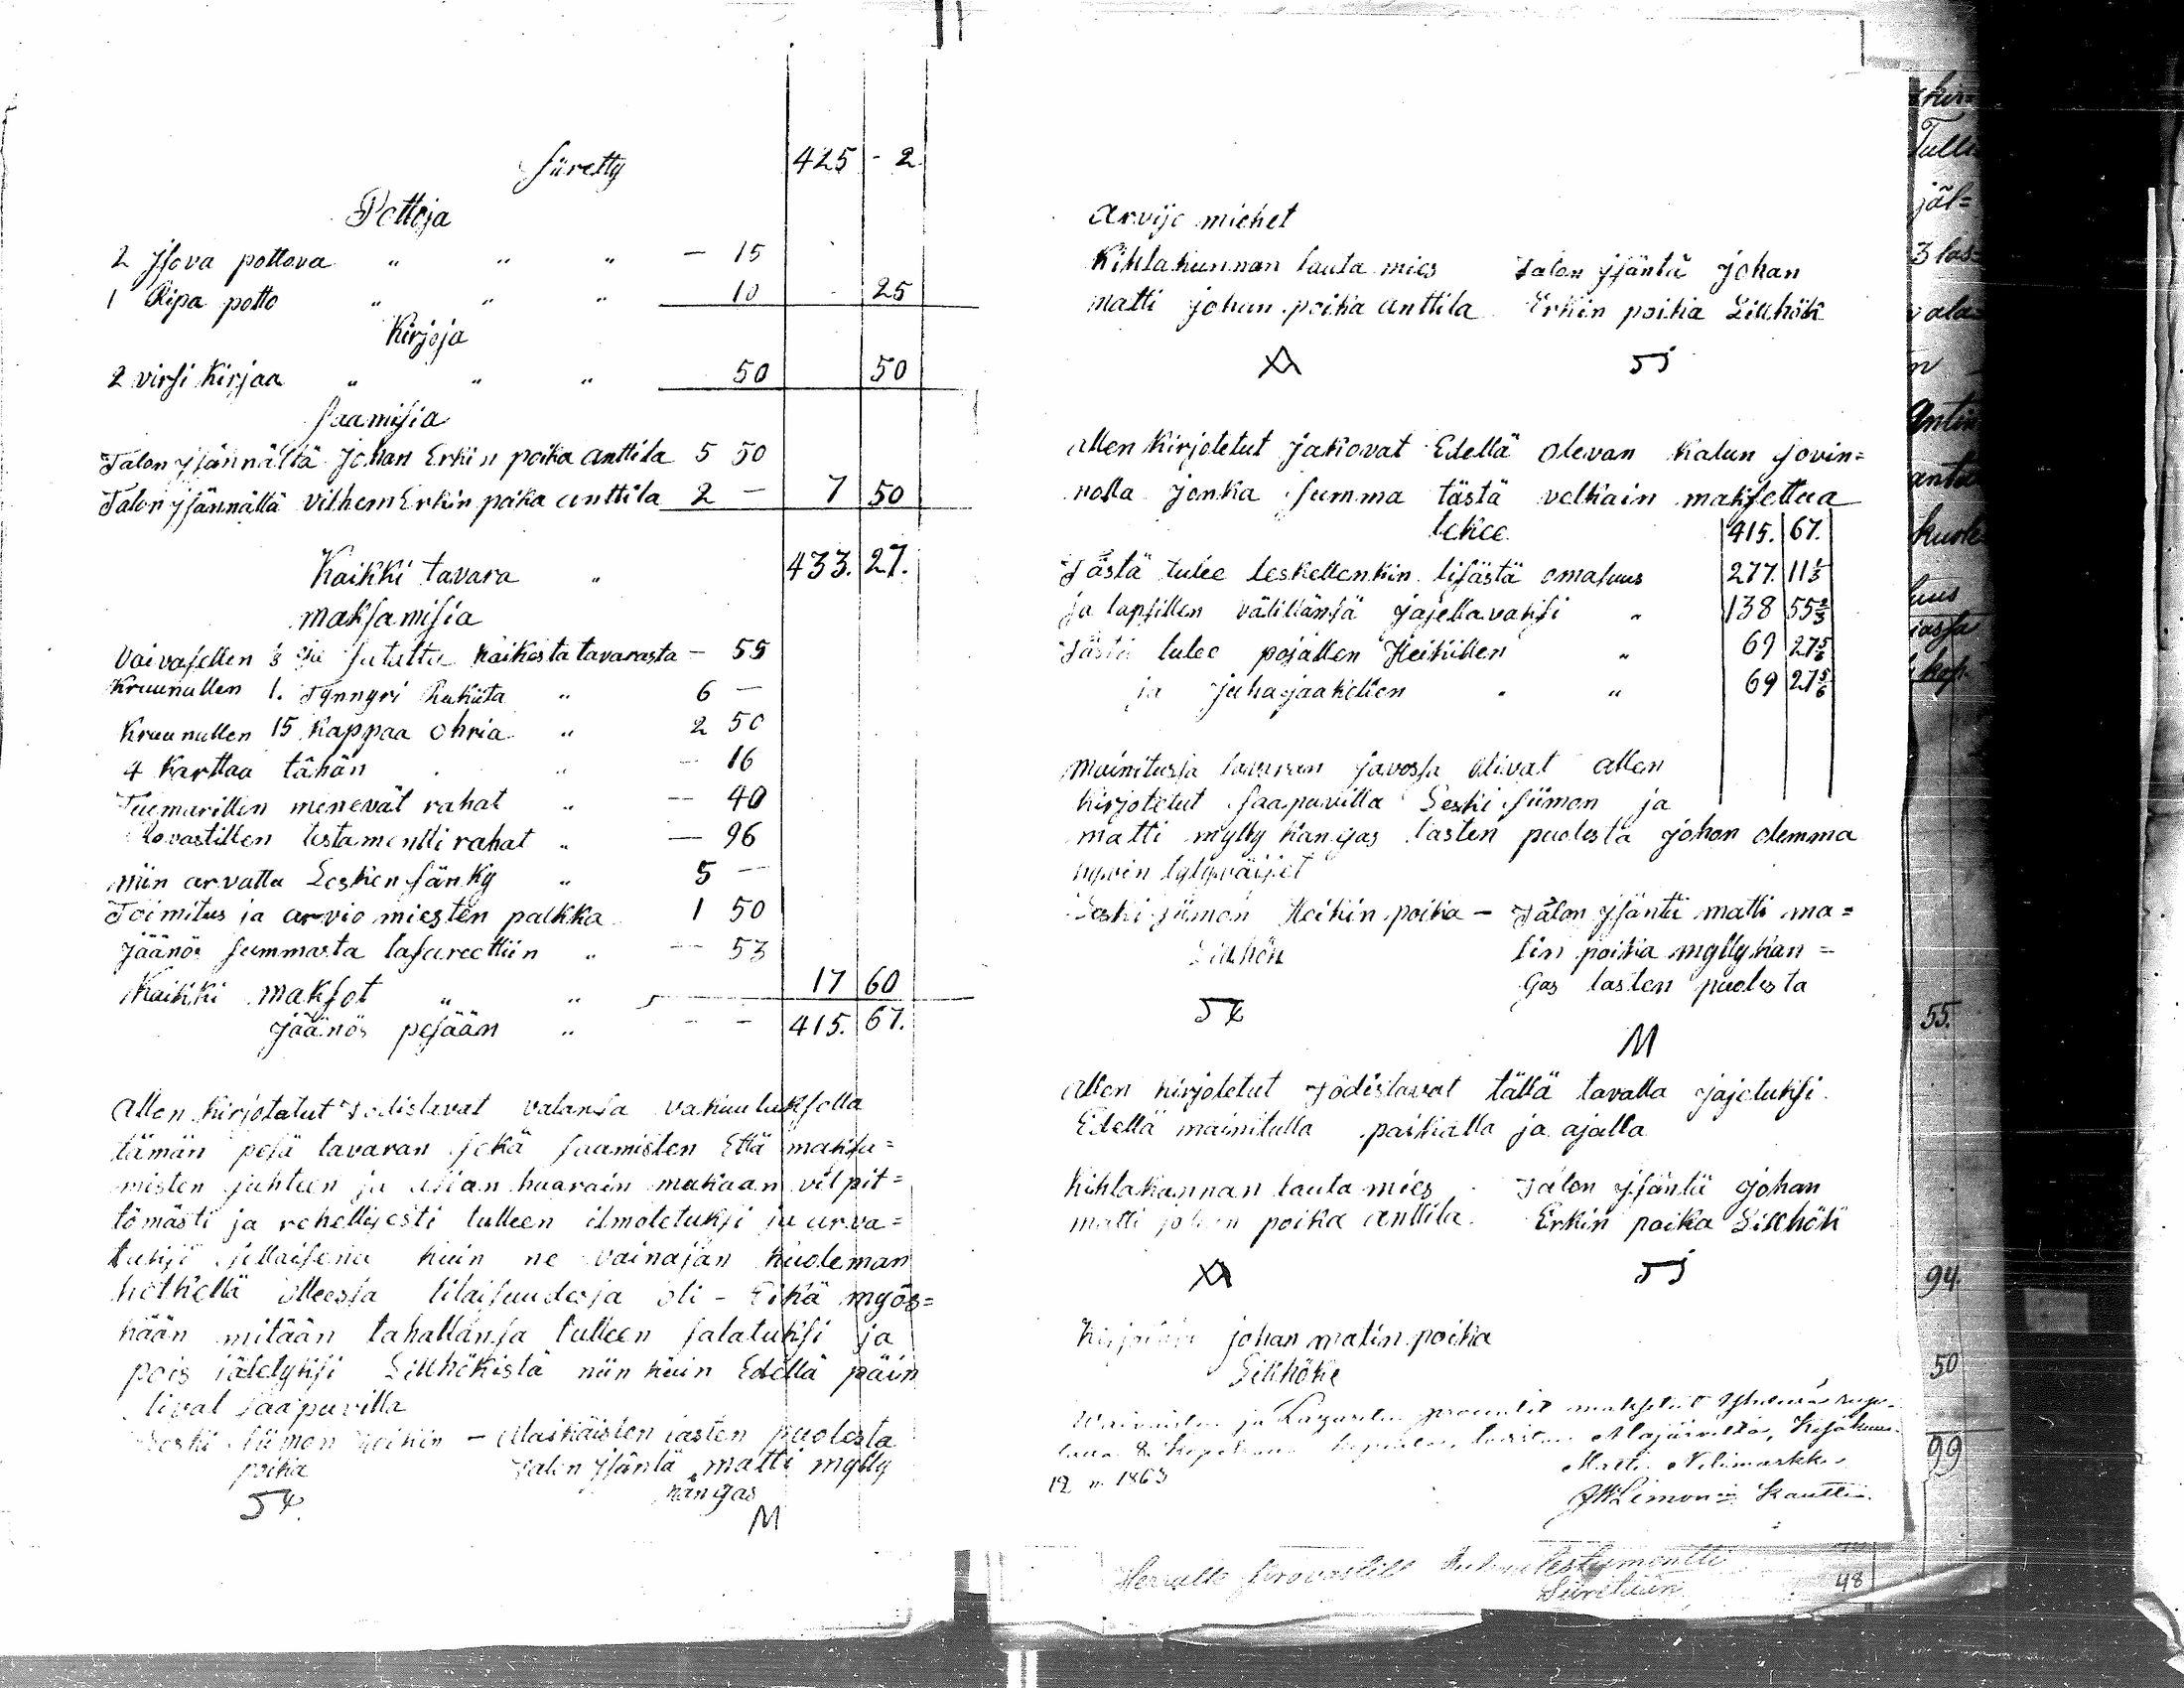 Siiretty 425 - 2
Pottoja
2 Jsova pottova " " " - 15
1 Ripa potto " " " 10 - 25
Kirjoja
2 virsi Kirjaa " " " 50 50
saamisia
Talon Jsännältä Johan Erkin poika anttila 5 50
Talon Jsännältä vilhem Erkin poika anttila 2 - 7 50
Kaikki tavara " 433. 27.
maksamisia
Vaivasellen satatta kaikesta tavarasta - 55
Kruunullen 1. Tynnyri Rukiita " 6 -
Kruunullen 15 Kappaa ohria " 2 50
4 Karttaa tähän " - 16
Tuomarillen menevät rahat " - 40
Rovastillen testamentti rahat " - 96
niin arvattu Lesken sänky " 5 -
Toimitus ja arvio miesten palkka 1 50
Jäänös summasta lasarettiin " - 53
Kaikki maksot " " 17 60
Jäänös pesään " - - 415. 67.
Allen kirjotetut Todistavat valansa vakuutuksella
tämän pesä tavaran sekä saamisten Että maksa=
misten suhteen ja asian haarain mukaan vilpit=
tömästi ja rehellisesti tulleen ilmotetuksi ja arva=
tuksi sillaisena kuin ne vainajan kuoleman
hetkellä olleessa tilaisuudessa oli - Eikä myös=
kään mitään tahallansa tulleen salatuksi ja
pois jätetyksi Lillhökistä niin kuin Edellä päin
lival saapuvilla
Leski Siimon Heikin - alaikäisten lasten puolesta
poika Talon Jsäntä matti mylly
kangas
M
Arvijo miehet
Kihlakunnan lauta mies Talon Jsäntä Johan
matti Johan poika anttila Erkin poika Lillhök
SJ
allen Kirjotetut Jakovat Edellä olevan Kalun sovin=
nolla Jonka summa tästä velkain maksettua
tekee 415. 67.
Tästä tulee leskellenkin lisästä omasuus 277. 11 1/3
ja lapsillen välillänsä Jajettavaksi " 138 55 2/3
Tästä tulee pojallen Heikillen " 69 27 5/6
ja Juhajaakillen " " 69 27 5/6
mainitussa tavaran Javossa olivat allen
Kirjotetut saapuvilla Leski Siimon ja
matti mylly kangas lasten puolesta Johon olemma
hyvin tytyväiset
Leski Siimon Heikin poika - Talon Jsäntä matti ma=
Lillhök tin poika myllykan=
gas lasten puolesta
M
Allen kirjotetut Todistavat tällä tavalla Jajetuksi
Edellä mainitulla paikalla ja ajalla
Kihlakunnan lauta mies Talon Jsäntä Johan
matti johan poika anttila. Erkin poika Lillhök
SJ
Kirjoitti Johan matin poika
Lillhök
Waivaisten ja Lazaretin procentit maksetut
8 Kopekkaa Alajärveltä, Kesäkuun
12 p. 1863 Matti Nelimarkka
Kauttu.
Herralle provastille Testamentti
Siiretään 48
Tulle
jäl=
3 las=
kuole
55.
94.
50
99